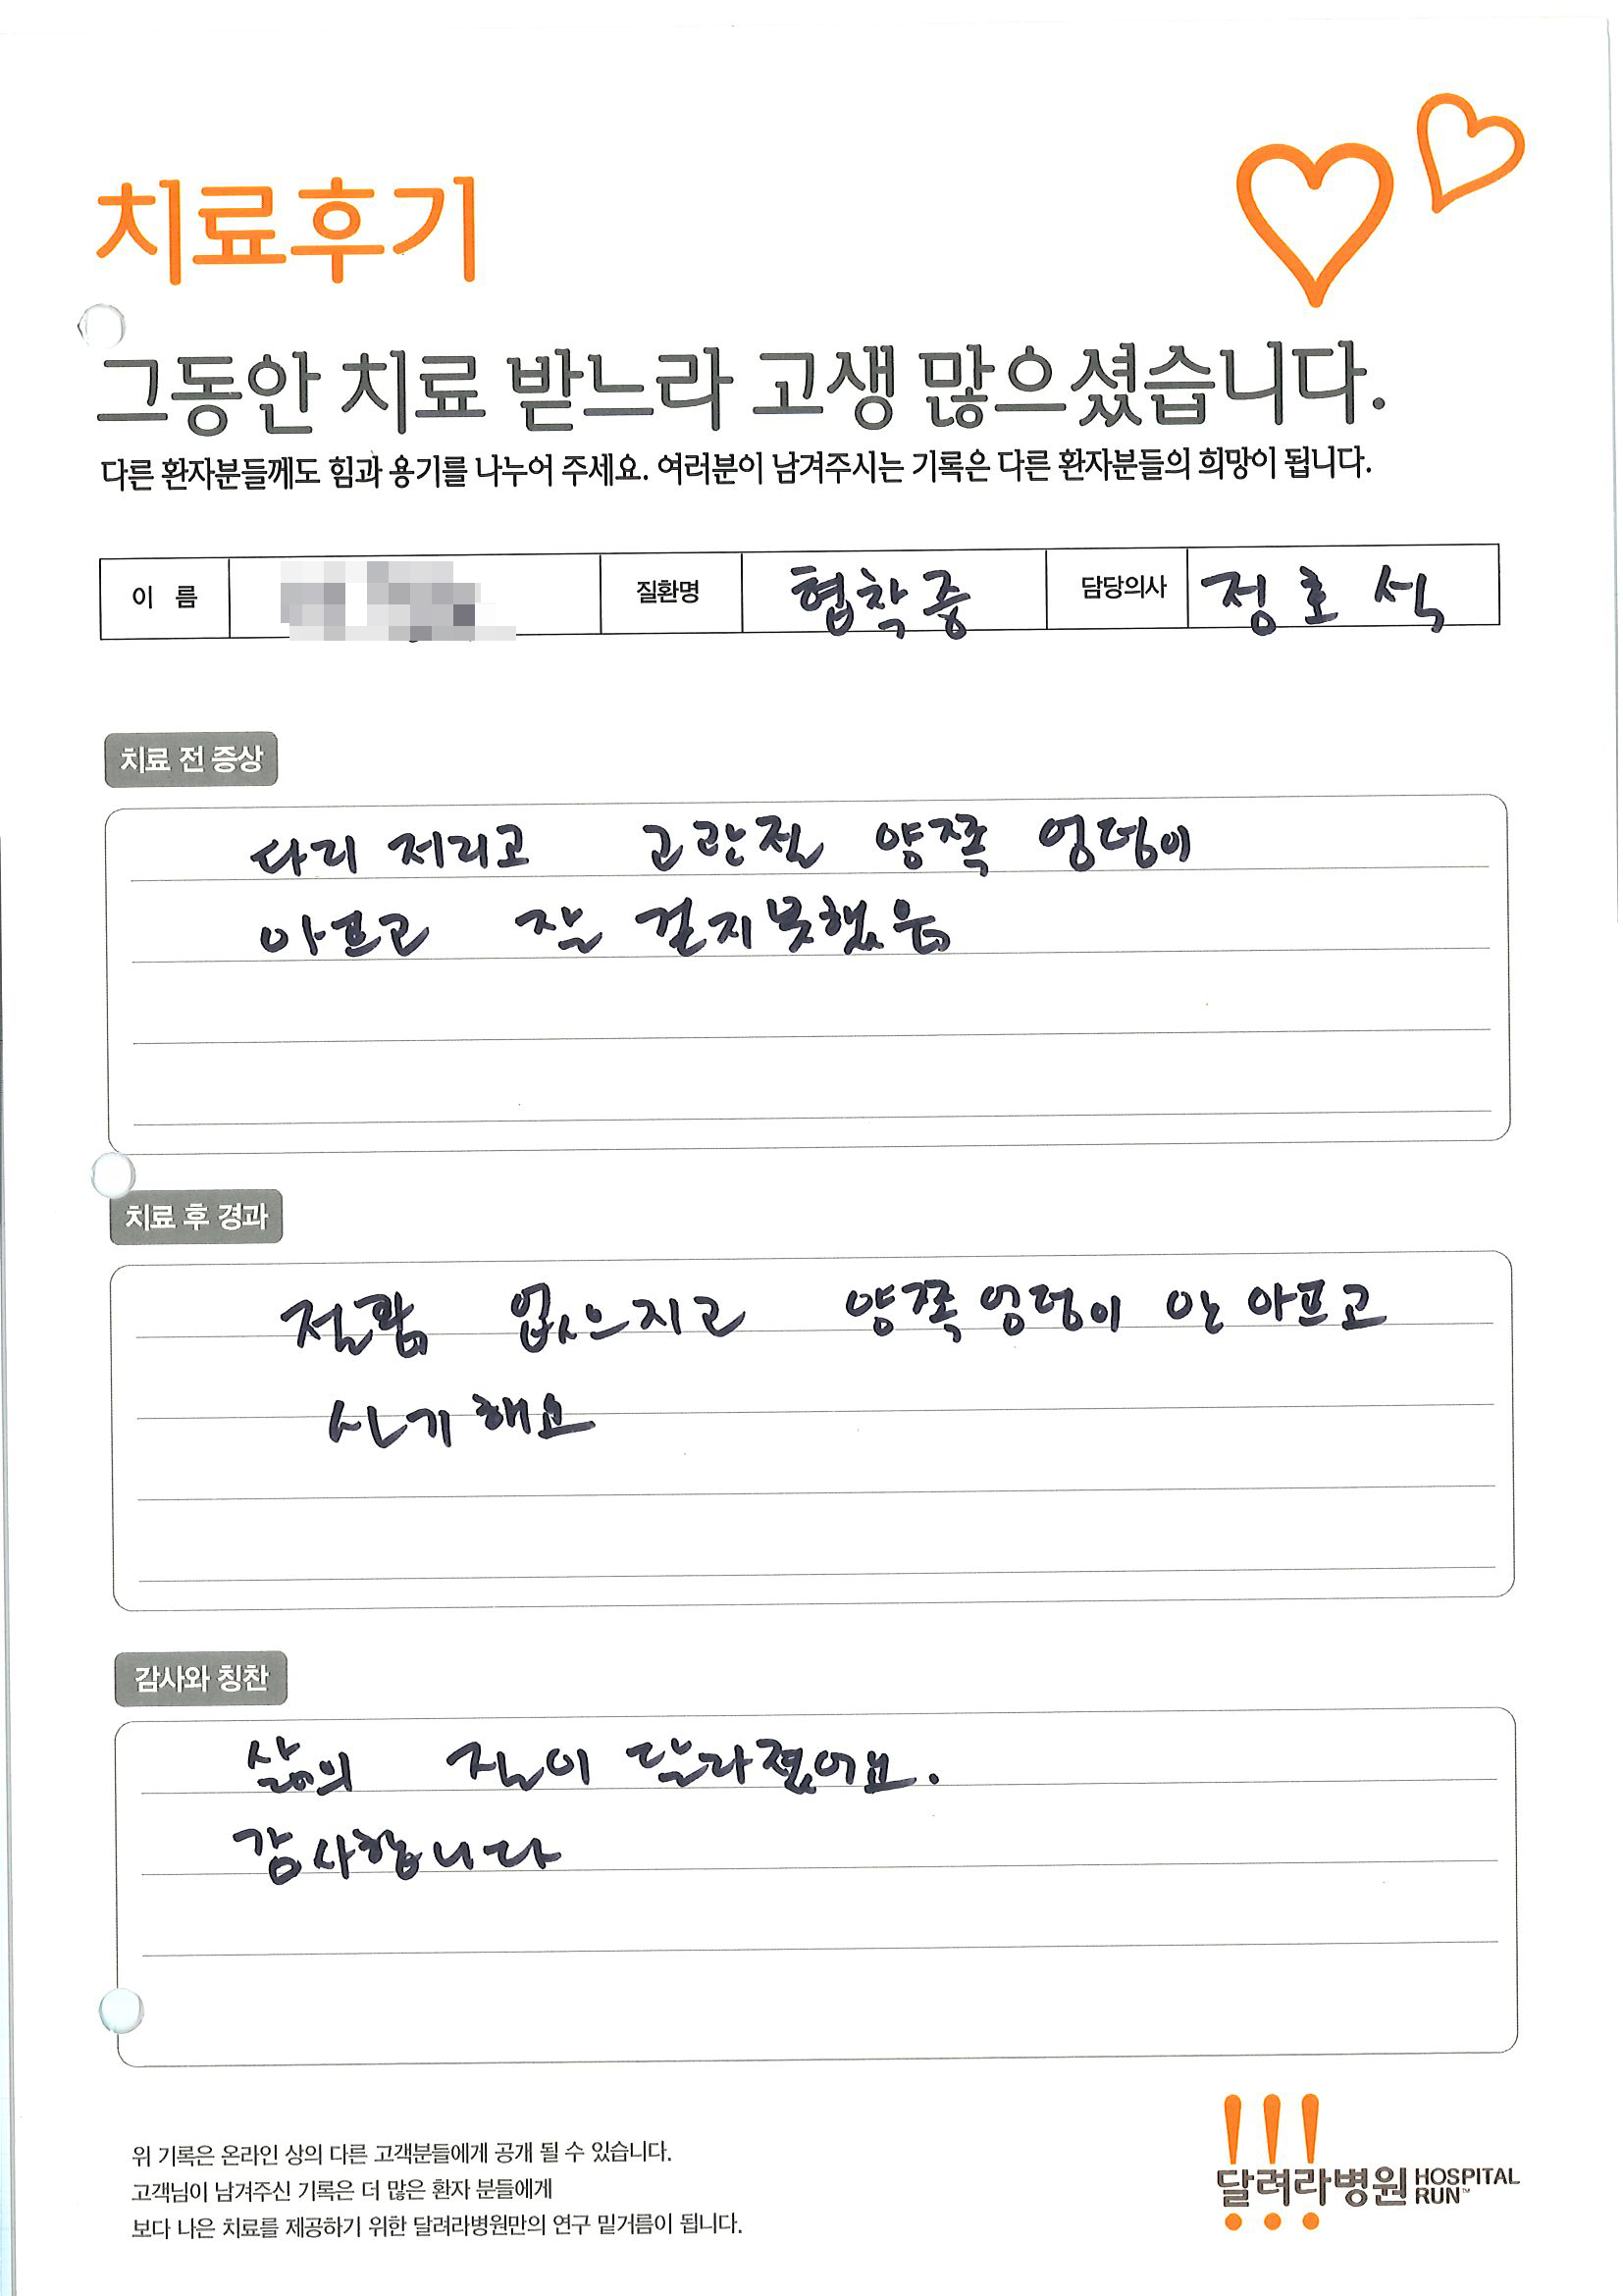 치료후기
그동안 치료 받느라 고생 많으셨습니다.
다른 환자분들께도 힘과 용기를 나누어 주세요. 여러분이 남겨주시는 기록은 다른 환자분들의 희망이 됩니다.
이 름 질환명 협착증 담당의사 정호석
치료 전 증상
다리 저리고 고관절 양쪽 엉덩이
아프고 잘 걸지못했음
치료 후 경과
절팜 없으지고 양쪽엉덩이 안 아프고
신기해요
감사와 칭찬
삶의 질이 달라졌어요.
감사합니다
위 기록은 온라인 상의 다른 고객분들에게 공개 될 수 있습니다.
고객님이 남겨주신 기록은 더 많은 환자 분들에게
보다 나은 치료를 제공하기 위한 달려라병원만의 연구 밑거름이 됩니다.
달려라병원 HOSPITAL RUN™